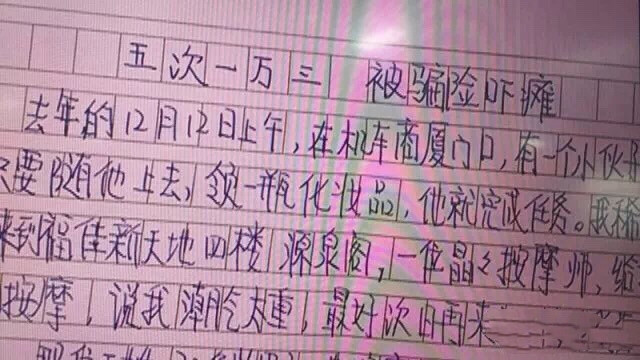 五次一万三 被骗险吓瘫
去年的12月12日上午，在机车商厦门口，有一个小伙
要随他上去，领一瓶化妆品，他就完成任务。我稀
来到福佳新天地四楼 源泉阁，一位晶々按摩师，给
按摩，说我潮肐太重，最好次日再来